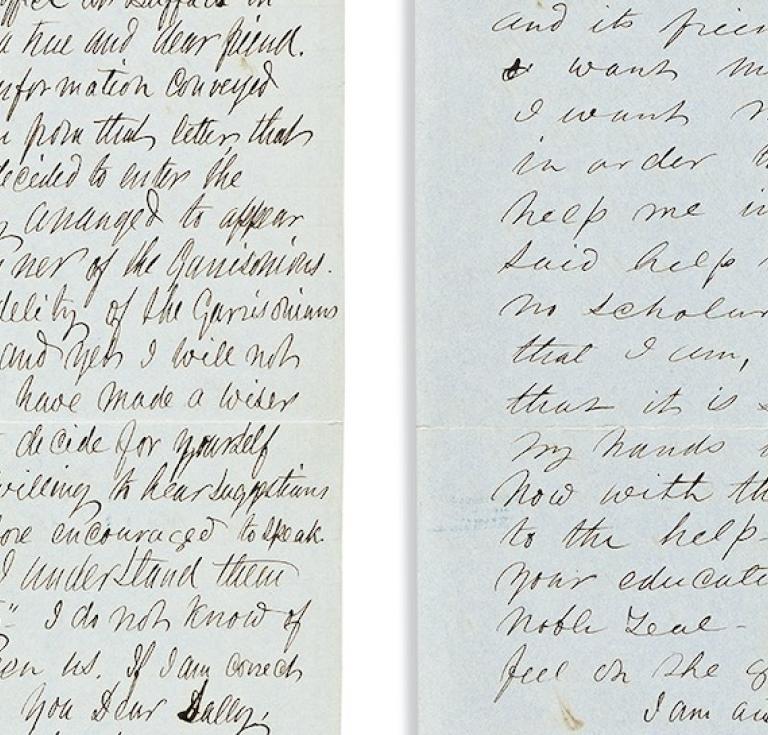 a true and dear friend.
information conveyed
from that letter that
decided to enter the
arranged to appear
of the Garrisonians.
of the Garrisonians
and yet I will not
have made a wiser
decide for yourself
willing to hear suggestions
encouraged to speak.
I understand them
" I do not know of
us. If I am correct
you Dear Sally,
and its
want
I want
in order
help me
said help
no
that I am,
that it is
my hands
now with
to the help-
your
noble Zeal-
feel on the
I am